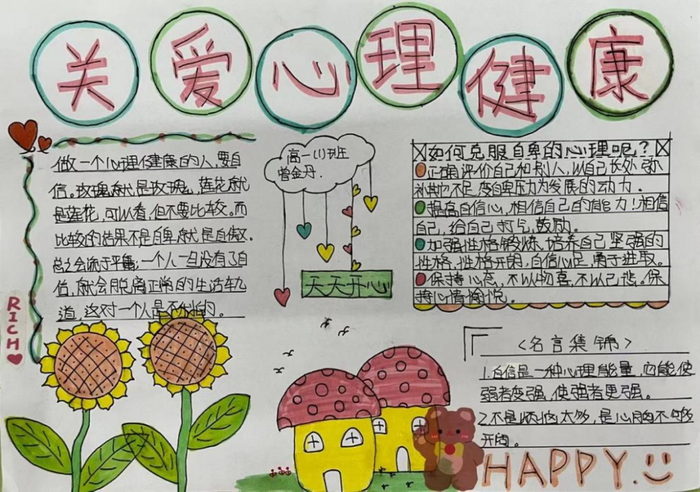 关爱心理健康
做一个心理健康的人,要自
信。玫瑰就是玫瑰,莲花就
是莲花,可以看,但不要比较。而
比较的结果不是自卑就是自傲,
总之会流于平庸,一个人一旦没有了自
信,就会脱离正常的生活轨
道,这对一个人是不利的。
RICH
高一(1)班
曾金丹.
天天开心
如何克服自卑的心理呢?
正确评价自己和别人,以自己长处弥
补其他不足,变自卑压力为发展的动力.
提高自信心,相信自己的能力!相信
自己,给自己打气,鼓励.
加强性格锻炼.培养自己坚强的
性格,性格开朗,自信心足,勇于进取.
保持心态,不以物喜,不以己悲。保
持心情愉悦。
<名言集锦>
1.自信是一种心理能量,也能使
弱者变强,使强者更强。
2.不是烦恼太多,是心胸不够
开阔。
HAPPY.